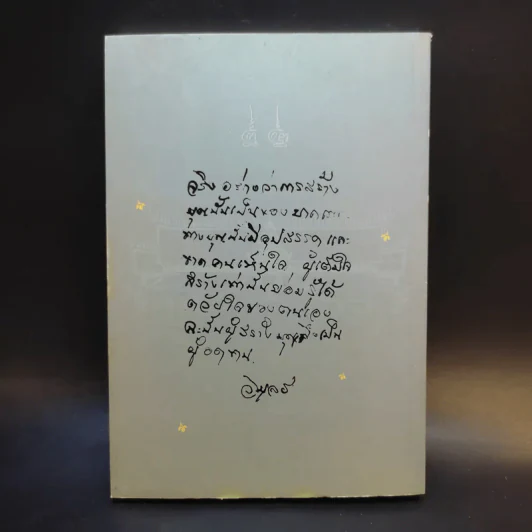 จริง อย่างว่าการสร้าง
บุญนั้นเป็นของยาก
ทางบุญนั้นมีอุปสรรค และ
ขาด คนเห็นใจ ผู้เต็มใจ
สร้างเท่านั้นย่อมรู้ได้
ด้วยใจของตนเอง
ฉะนั้นผู้สร้างบุญจึงเป็น
ผู้อดทน.